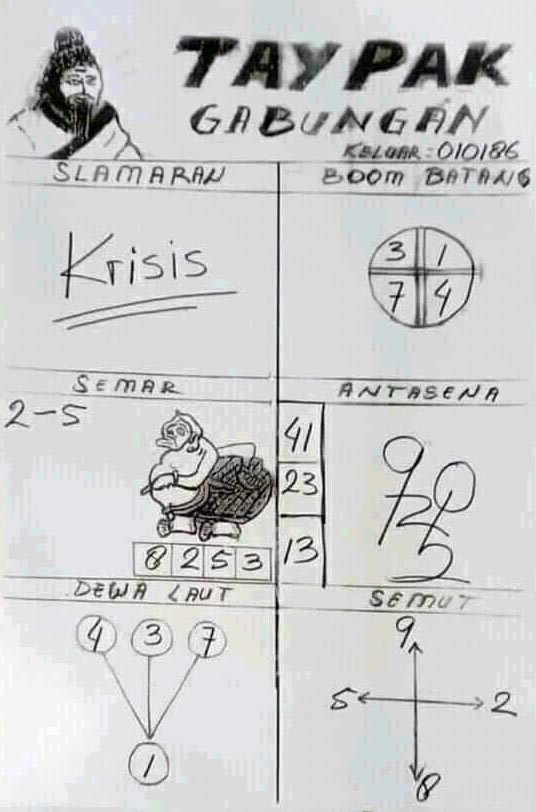 TAYPAK
GABUNGAN
KELUAR: 010186
SLAMARAN
Krisis
BOOM BATANG
3 1
7 4
SEMAR
2-5
8 2 5 3
41
23
13
ANTASENA
DEWA LAUT
4 3 7
1
SEMUT
9
5 2
8